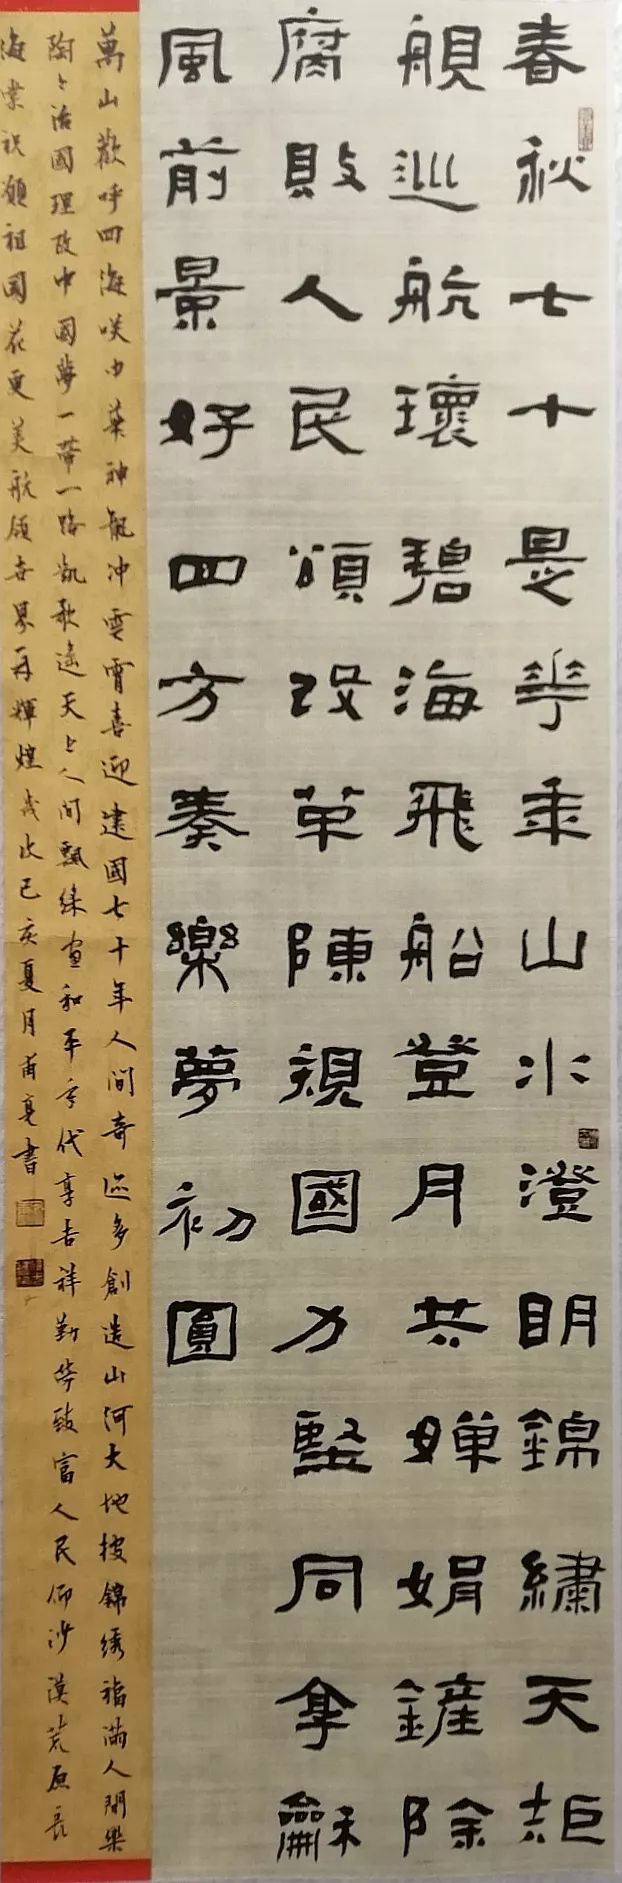 春秋七十是華年山水澄明錦繡天艍
艦巡航環碧海飛船登月共嬋娟鏟除
腐敗人民頌改革陳規國力堅同拿龢
風前景好四方奏樂夢初圓
萬山歡呼四海笑中華神龍沖雲霄喜迎建國七十年人間奇迹多創造山河大地披錦绣福滿人間樂
陶陶治國理政中國夢一帶一路凱歌遙天上人間飄綵畫和平年代享吉祥勤勞致富人民仰沙漠荒原長
海棠祝願祖國花更美航領世界再輝煌歲次己亥夏月甫亮書